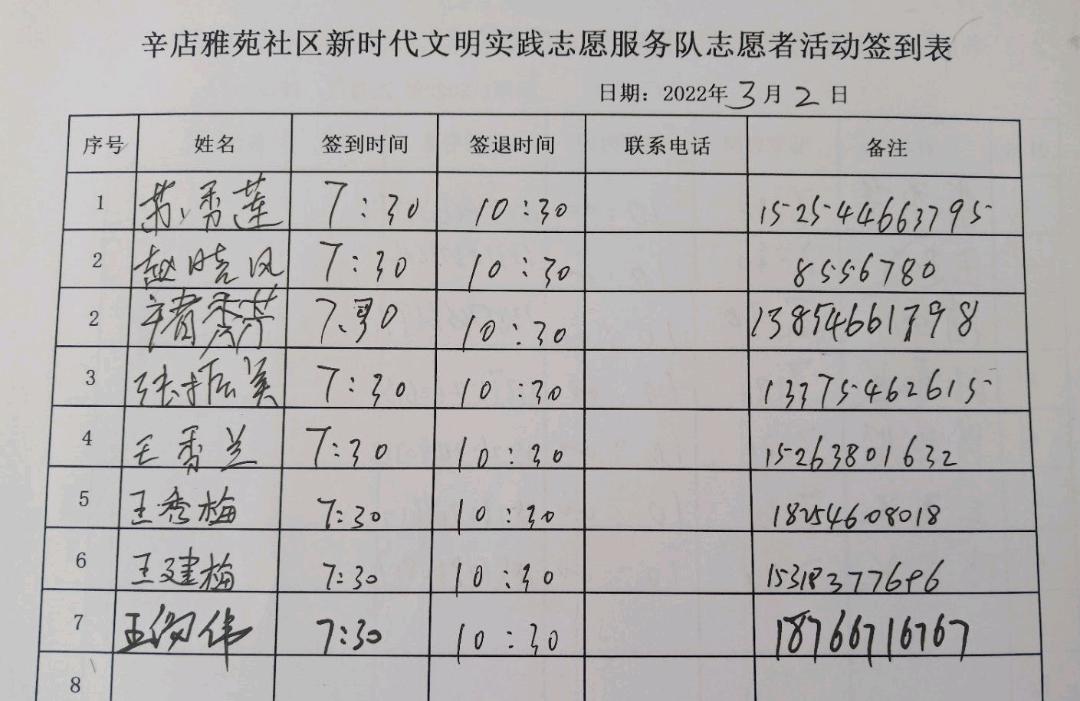 辛店雅苑社区新时代文明实践志愿服务队志愿者活动签到表
日期：2022年3月2日
序号 姓名 签到时间 签退时间 联系电话 备注
1 苏秀莲 7:30 10:30 152544663795
2 赵晓凤 7:30 10:30 8556780
2 7.30 10:30 13854661798
3 张振美 7:30 10:30 13375462615
4 王秀兰 7:30 10:30 15263801632
5 王秀梅 7:30 10:30 18254608018
6 王建梅 7:30 10:30 15318377696
7 7:30 10:30 18766716767
8